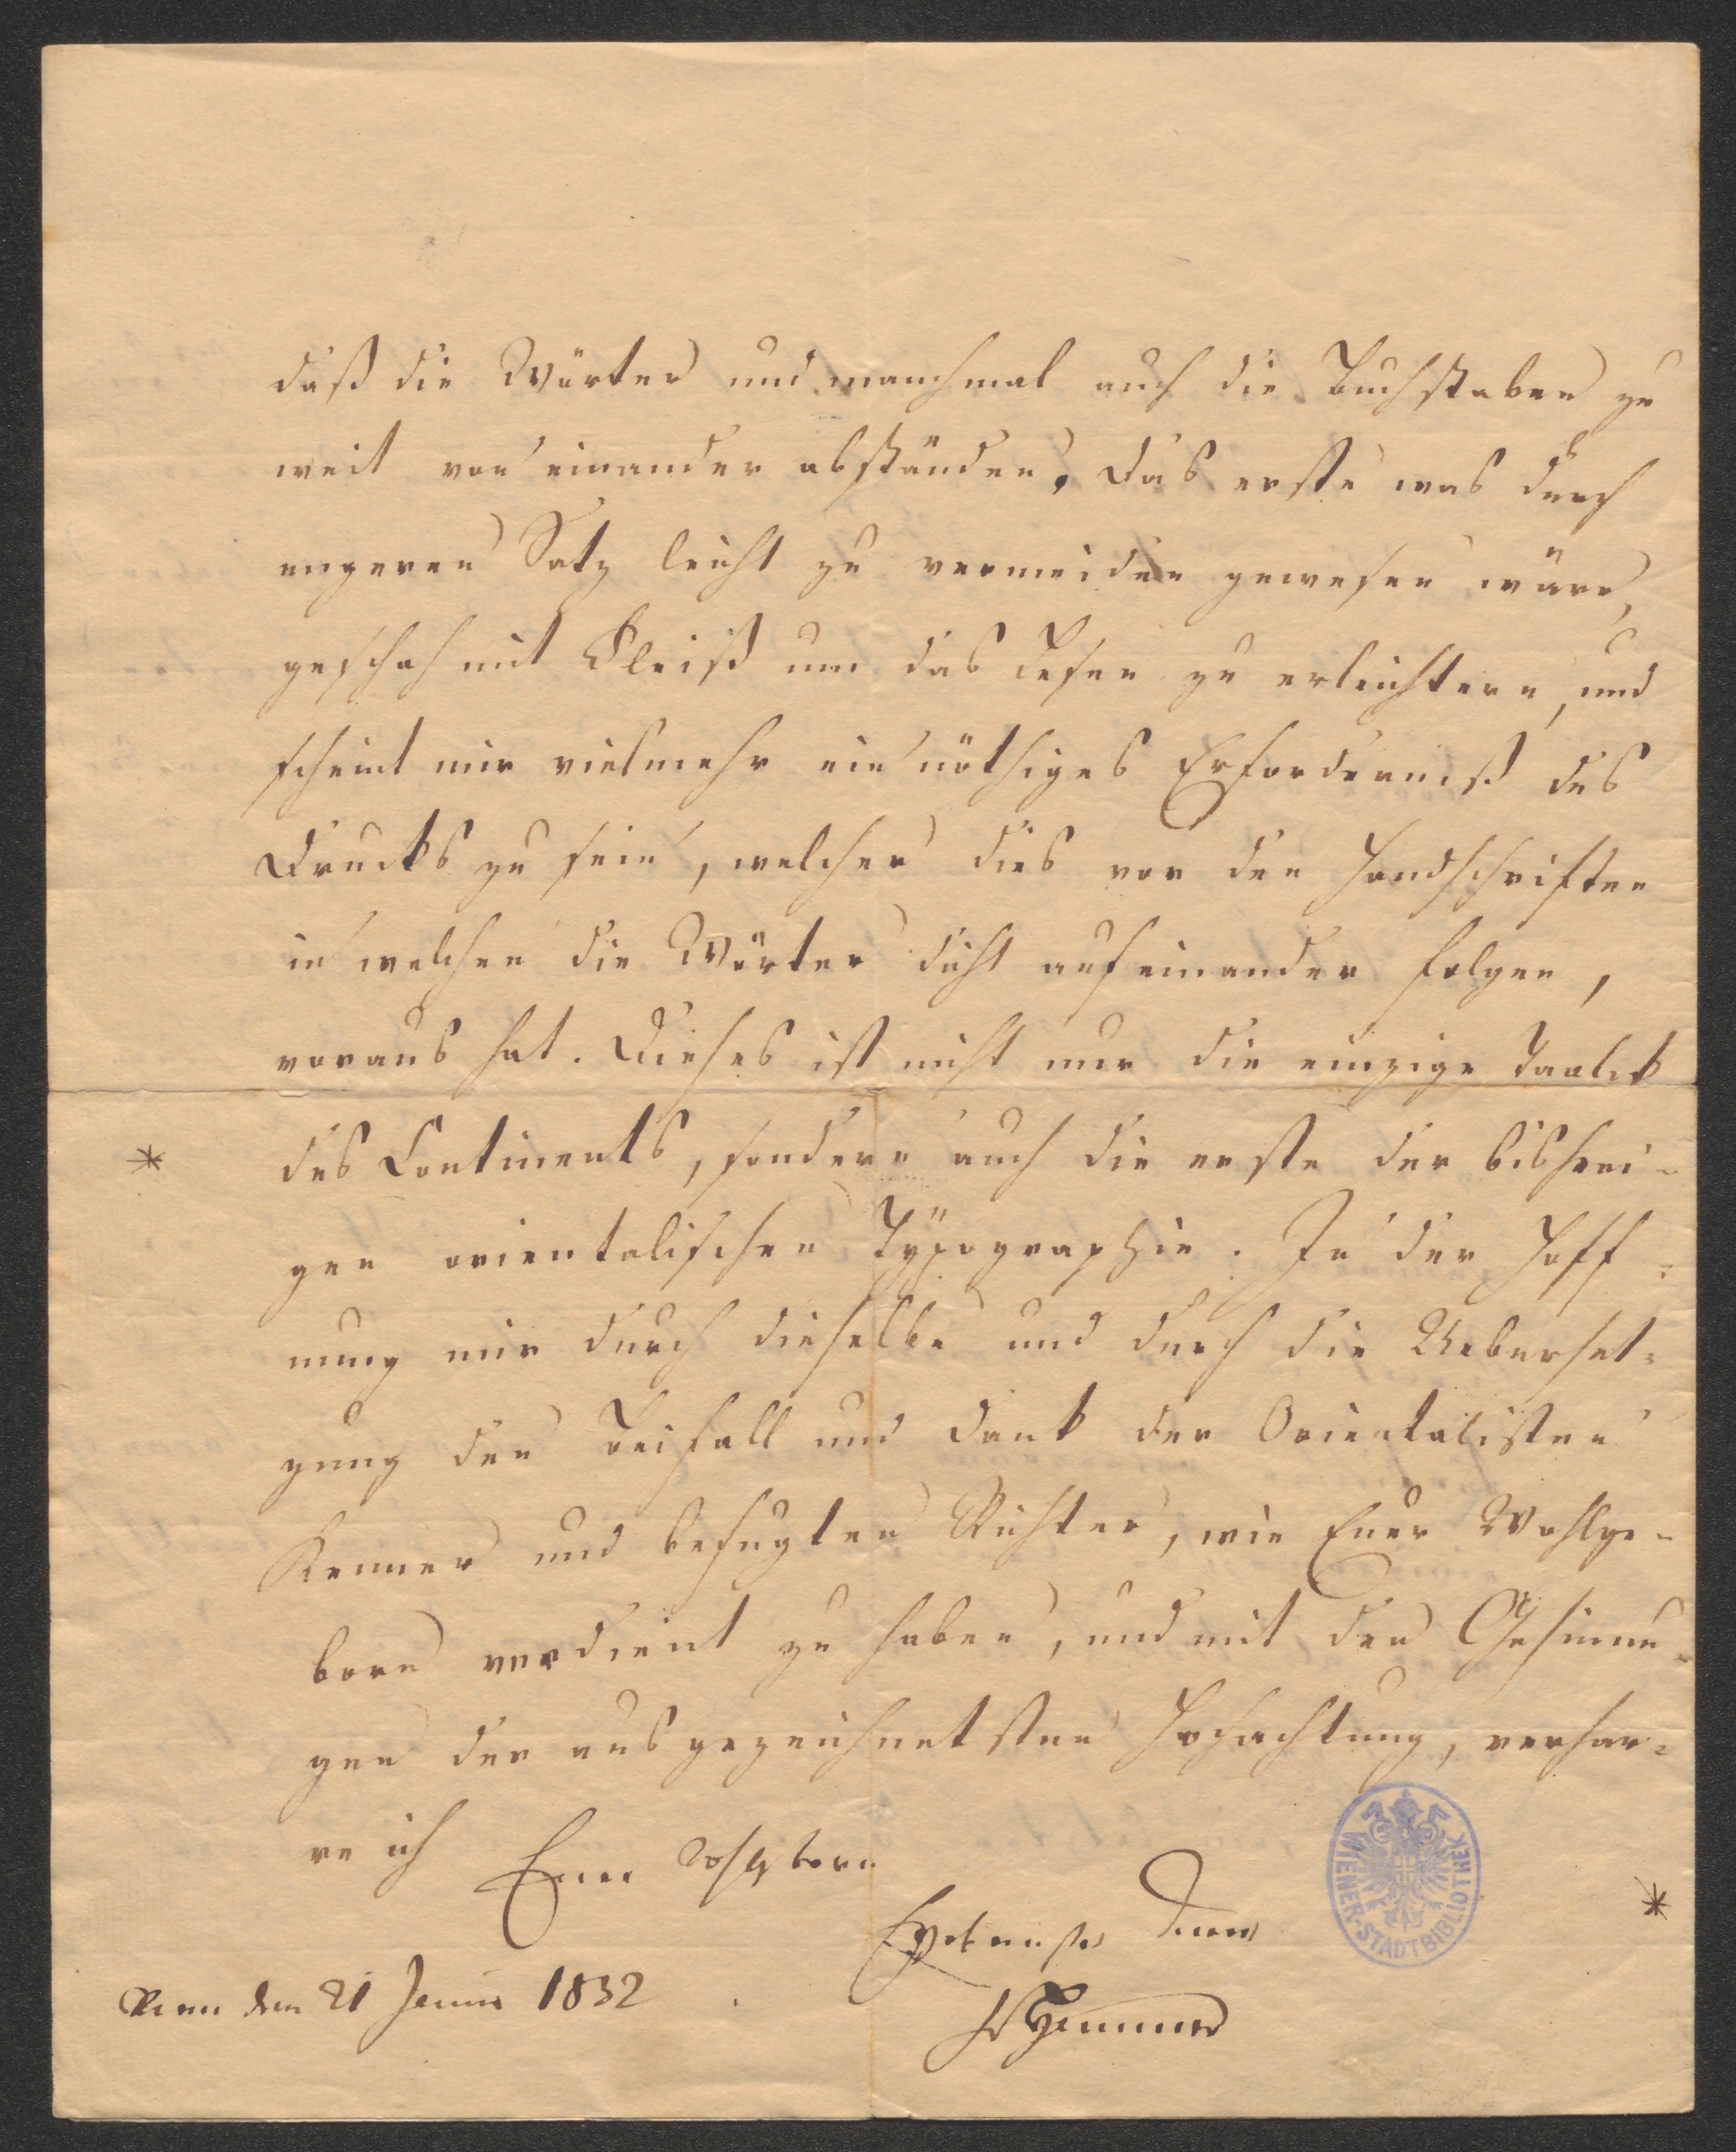 daß die Wörter und manchmal auch die Buchstaben zu
weit von einander abständen, Das erste was durch
engeren Satz leicht zu vermeiden gewesen wäre,
geschah mit Fleiß um das Lesen zu erleichtern, und
scheint mir vielmehr ein nöthiges Erforderniß des
Drucks zu sein, welcher dies vor den Handschriften
in welchen die Wörter dicht aufeinander folgen,
voraus hat. Dieses ist nicht nur die einzige Taalik
* des Continents, sondern auch die erste der bisheri-
gen orientalischen Typographie. In der Hoff-
nung mir durch dieselbe und durch die Ueberset-
zung den Beifall und Dank der Orientalisten
Kenner und befugten Richter, wie Euer Wohlge-
born verdient zu haben, und mit den Gesinnun-
gen der ausgezeichnetsten Hochachtung, verhar-
re ich Euer Wohlgeborn
Ergebenster Diener
*
Wien den 21 1832
vHammer
WIENER·STADTBIBLIOTHEK